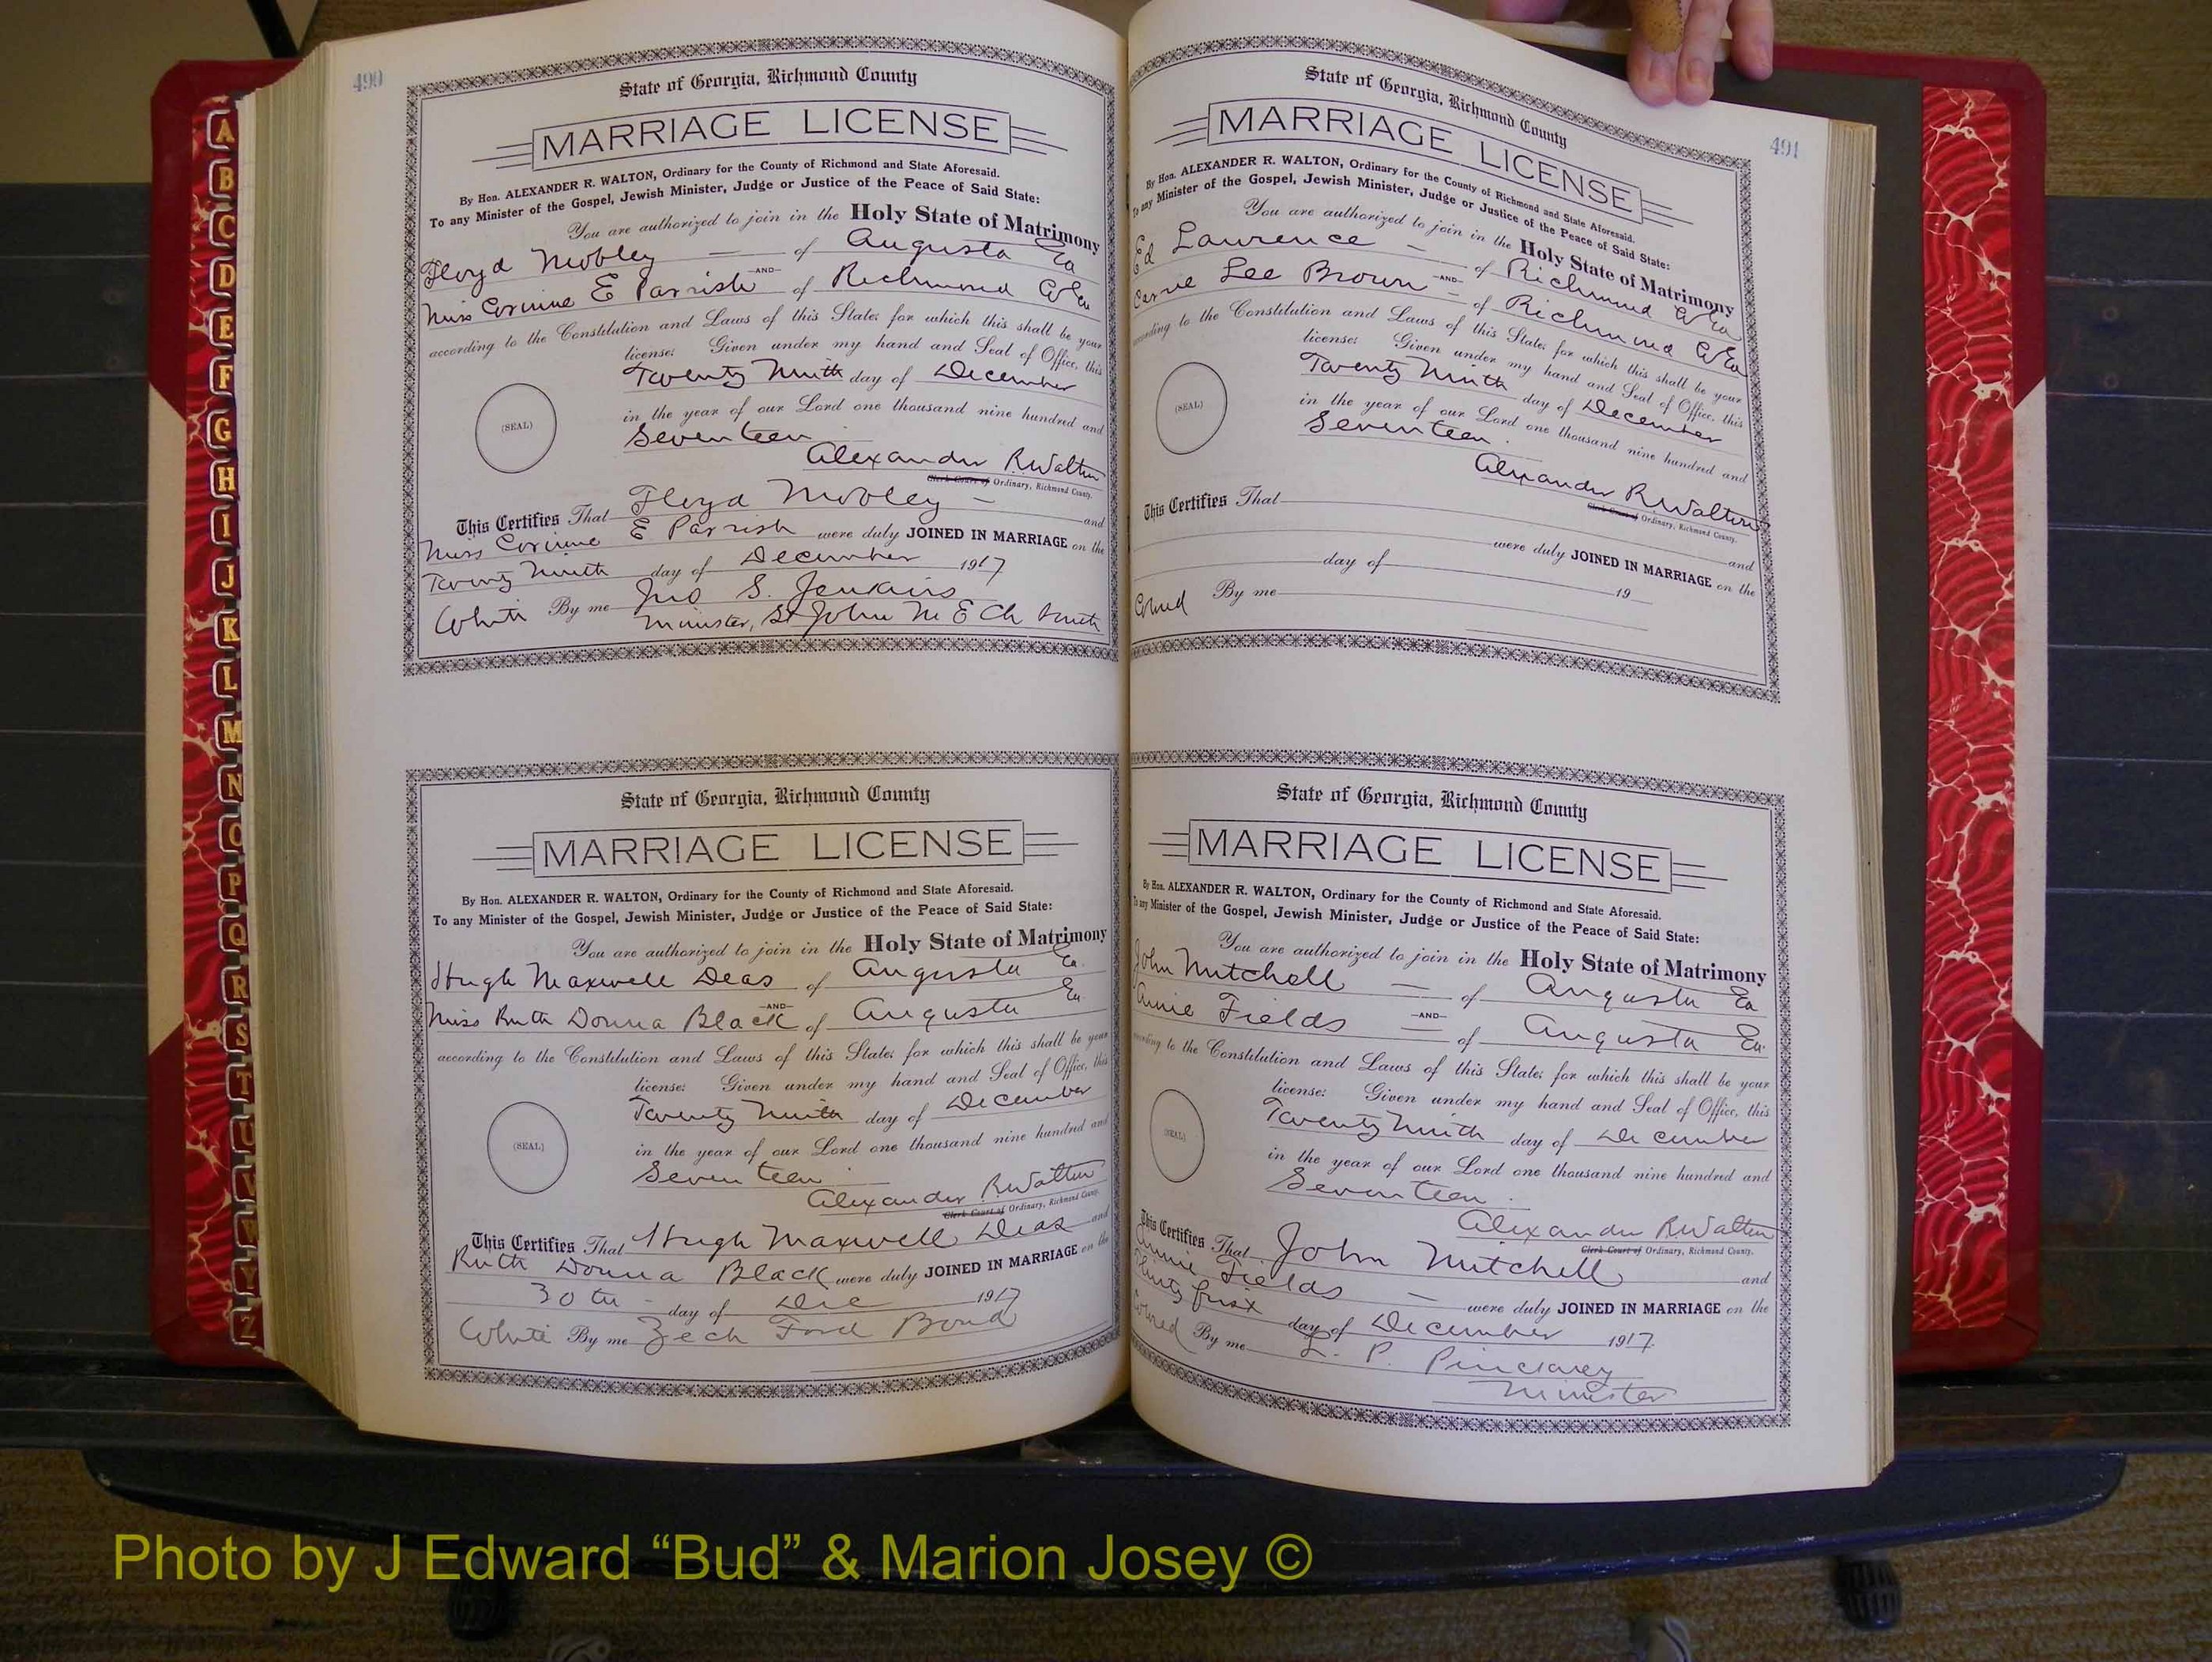 490
State of Georgia, Richmond County
MARRIAGE LICENSE
By Hon. ALEXANDER R. WALTON, Ordinary for the County of Richmond and State Aforesaid.
To any Minister of the Gospel, Jewish Minister, Judge or Justice of the Peace of Said State:
You are authorized to join in the Holy State of Matrimony
Floyd Mobley — of Augusta Ga
AND
Miss Corinne E Parrish of Richmond Co Ga
according to the Constitution and Laws of this State; for which this shall be your
license: Given under my hand and Seal of Office, this
Twenty Ninth day of December
in the year of our Lord one thousand nine hundred and
(SEAL)
Seventeen
Alexander R Walton
Clerk Court of Ordinary, Richmond County.
This Certifies That Floyd Mobley — and
Miss Corinne E Parrish were duly JOINED IN MARRIAGE on the
Twenty Ninth day of December 1917
White By me Jno S. Jenkins
Minister, St John M E Ch South
State of Georgia, Richmond County
MARRIAGE LICENSE
By Hon. ALEXANDER R. WALTON, Ordinary for the County of Richmond and State Aforesaid.
To any Minister of the Gospel, Jewish Minister, Judge or Justice of the Peace of Said State:
You are authorized to join in the Holy State of Matrimony
Hugh Maxwell Deas of Augusta Ga.
AND
Miss Ruth Donna Black of Augusta Ga.
according to the Constitution and Laws of this State; for which this shall be your
license: Given under my hand and Seal of Office, this
Twenty Ninth day of December
in the year of our Lord one thousand nine hundred and
(SEAL)
Seventeen
Alexander R Walton
Clerk Court of Ordinary, Richmond County.
This Certifies That Hugh Maxwell Deas and
Ruth Donna Black were duly JOINED IN MARRIAGE on the
30th day of Dec 1917
White By me Zech Ford Bond
491
State of Georgia, Richmond County
MARRIAGE LICENSE
By Hon. ALEXANDER R. WALTON, Ordinary for the County of Richmond and State Aforesaid.
To any Minister of the Gospel, Jewish Minister, Judge or Justice of the Peace of Said State:
You are authorized to join in the Holy State of Matrimony
Ed Lawrence — of Richmond Co Ga
AND
Lee Brown — of Richmond Co Ga
according to the Constitution and Laws of this State; for which this shall be your
license: Given under my hand and Seal of Office, this
Twenty Ninth day of December
in the year of our Lord one thousand nine hundred and
(SEAL)
Seventeen.
Alexander R Walton
Clerk Court of Ordinary, Richmond County.
This Certifies That
and
were duly JOINED IN MARRIAGE on the
day of 19
By me
State of Georgia, Richmond County
MARRIAGE LICENSE
By Hon. ALEXANDER R. WALTON, Ordinary for the County of Richmond and State Aforesaid.
To any Minister of the Gospel, Jewish Minister, Judge or Justice of the Peace of Said State:
You are authorized to join in the Holy State of Matrimony
John Mitchell — of Augusta Ga
AND
Annie Fields — of Augusta Ga.
according to the Constitution and Laws of this State; for which this shall be your
license: Given under my hand and Seal of Office, this
Twenty Ninth day of December
in the year of our Lord one thousand nine hundred and
(SEAL)
Seventeen.
Alexander R Walton
Clerk Court of Ordinary, Richmond County.
This Certifies That John Mitchell and
Annie Fields — were duly JOINED IN MARRIAGE on the
Thirty first day of December 1917.
Colored By me L. P. Pinckney
Minister
A
B
C
D
E
F
G
H
I
J
K
L
M
N
O
P
Q
R
S
T
U
V
W
Y
Z
Photo by J Edward “Bud” & Marion Josey ©